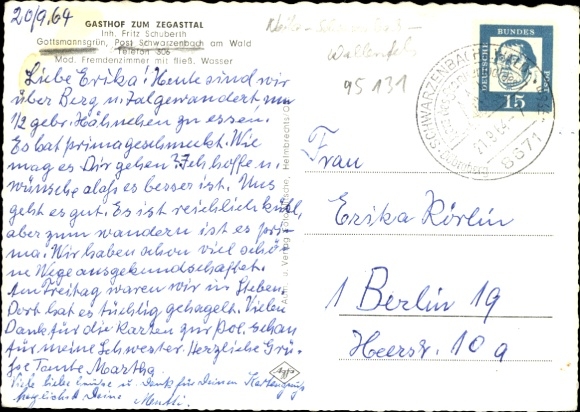 20/9.64
GASTHOF ZUM ZEGASTTAL
Inh. Fritz Schuberth
Gottsmannsgrün, Post Schwarzenbach am Wald
Telefon 306
Mod. Fremdenzimmer mit fließ. Wasser
Liebe Erika! Heute sind wir
über Berg u. Tal gewandert um
1/2 gebr. Hähnchen zu essen.
Es hat prima geschmeckt. Wie
mag es Dir gehen? Ich hoffe u.
wünsche daß es besser ist. Uns
geht es gut. Es ist reichlich kühl,
aber zum wandern ist es pri-
ma. Wir haben schon viel schö-
ne Wege ausgekundschaftet.
Am Freitag waren wir in Steben.
Dort hat es tüchtig gehagelt. Vielen
Dank für die Karten zur Pol. schau
für meine Schwester. Herzliche Grü-
sse Tante Martha
Viele liebe Grüsse u. Dank für Deinen Kartengruß
herzlichst Deine Mutti.
Wallenfels
95131
DEUTSCHE BUNDESPOST
15
SCHWARZENBACH
8671
Frau
Erika Körlin
1 Berlin 19
Heerstr. 10 a
Agfa